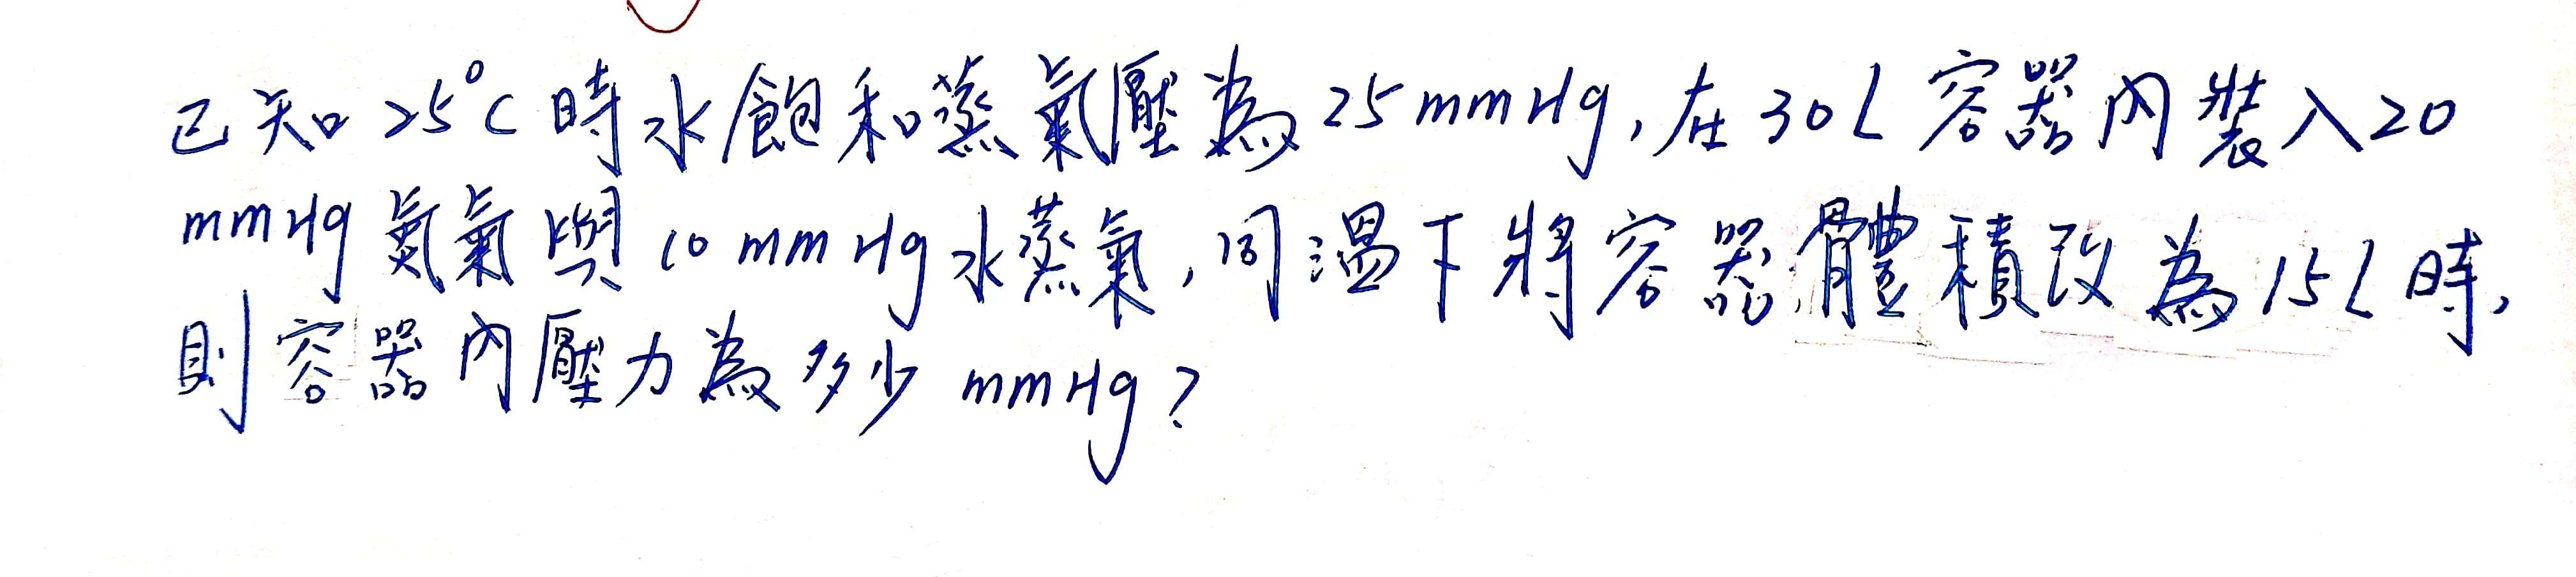 已知25°C時水飽和蒸氣壓為25mmHg,在30L容器內裝入20
mmHg氮氣與10mmHg水蒸氣,同溫下將容器體積改為15L時,
則容器內壓力為多少mmHg?